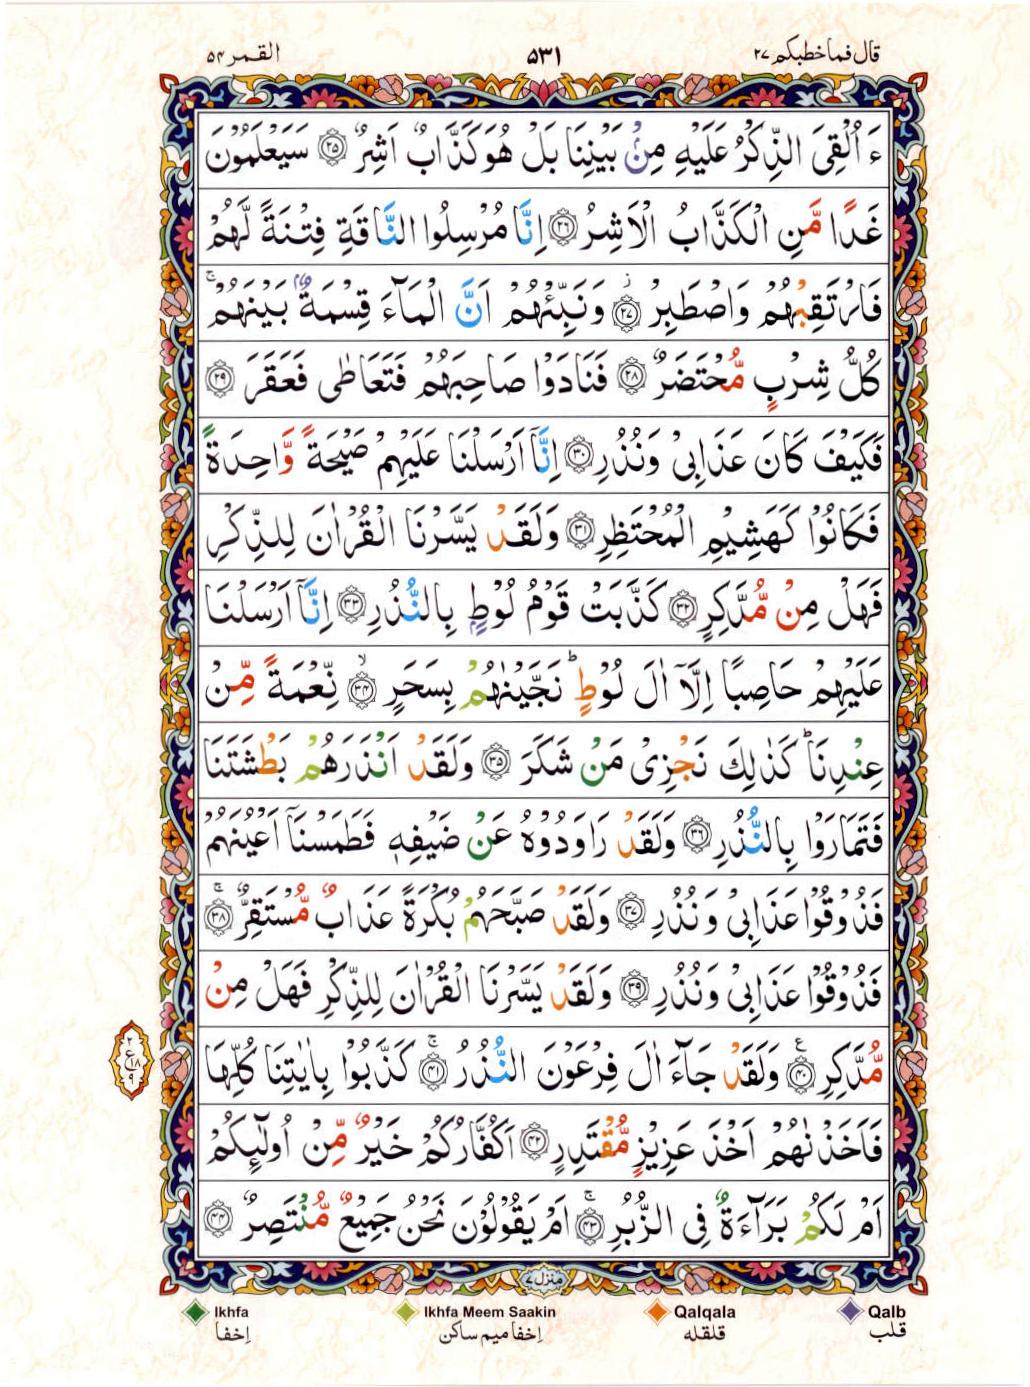 قال فما خطبکم ۲۷
۵۳۱
القمر ۵۴
ءَاُلْقِیَ الذِّكْرُ عَلَیْهِ مِنْۢ بَیْنِنَا بَلْ هُوَ كَذَّابٌ اَشِرٌ ﴿۲۵﴾ سَیَعْلَمُوْنَ
غَدًا مَّنِ الْكَذَّابُ الْاَشِرُ ﴿۲۶﴾ اِنَّا مُرْسِلُوا النَّاقَةِ فِتْنَةً لَّهُمْ
فَارْتَقِبْهُمْ وَاصْطَبِرْ ﴿۲۷﴾ؗ وَنَبِّئْهُمْ اَنَّ الْمَآءَ قِسْمَةٌۢ بَیْنَهُمْ ۚ
كُلُّ شِرْبٍ مُّحْتَضَرٌ ﴿۲۸﴾ فَنَادَوْا صَاحِبَهُمْ فَتَعَاطٰی فَعَقَرَ ﴿۲۹﴾
فَكَیْفَ كَانَ عَذَابِیْ وَنُذُرِ ﴿۳۰﴾ اِنَّاۤ اَرْسَلْنَا عَلَیْهِمْ صَیْحَةً وَّاحِدَةً
فَكَانُوْا كَهَشِیْمِ الْمُحْتَظِرِ ﴿۳۱﴾ وَلَقَدْ یَسَّرْنَا الْقُرْاٰنَ لِلذِّكْرِ
فَهَلْ مِنْ مُّدَّكِرٍ ﴿۳۲﴾ كَذَّبَتْ قَوْمُ لُوْطٍۭ بِالنُّذُرِ ﴿۳۳﴾ اِنَّاۤ اَرْسَلْنَا
عَلَیْهِمْ حَاصِبًا اِلَّاۤ اٰلَ لُوْطٍ ؕ نَجَّیْنٰهُمْ بِسَحَرٍ ﴿۳۴﴾ۙ نِّعْمَةً مِّنْ
عِنْدِنَا ؕ كَذٰلِكَ نَجْزِیْ مَنْ شَكَرَ ﴿۳۵﴾ وَلَقَدْ اَنْذَرَهُمْ بَطْشَتَنَا
فَتَمَارَوْا بِالنُّذُرِ ﴿۳۶﴾ وَلَقَدْ رَاوَدُوْهُ عَنْ ضَیْفِهٖ فَطَمَسْنَاۤ اَعْیُنَهُمْ
فَذُوْقُوْا عَذَابِیْ وَنُذُرِ ﴿۳۷﴾ وَلَقَدْ صَبَّحَهُمْ بُكْرَةً عَذَابٌ مُّسْتَقِرٌّ ﴿۳۸﴾ۚ
فَذُوْقُوْا عَذَابِیْ وَنُذُرِ ﴿۳۹﴾ وَلَقَدْ یَسَّرْنَا الْقُرْاٰنَ لِلذِّكْرِ فَهَلْ مِنْ
مُّدَّكِرٍ ﴿۴۰﴾ؑ وَلَقَدْ جَآءَ اٰلَ فِرْعَوْنَ النُّذُرُ ﴿۴۱﴾ۚ كَذَّبُوْا بِاٰیٰتِنَا كُلِّهَا
۲
ع ۱۸
۹
فَاَخَذْنٰهُمْ اَخْذَ عَزِیْزٍ مُّقْتَدِرٍ ﴿۴۲﴾ اَكُفَّارُكُمْ خَیْرٌ مِّنْ اُولٰٓئِكُمْ
اَمْ لَكُمْ بَرَآءَةٌ فِی الزُّبُرِ ﴿۴۳﴾ۚ اَمْ یَقُوْلُوْنَ نَحْنُ جَمِیْعٌ مُّنْتَصِرٌ ﴿۴۴﴾
منزل ۷
Ikhfa Ikhfa Meem Saakin Qalqala Qalb
إخفا إخفا میم ساکن قلقله قلب